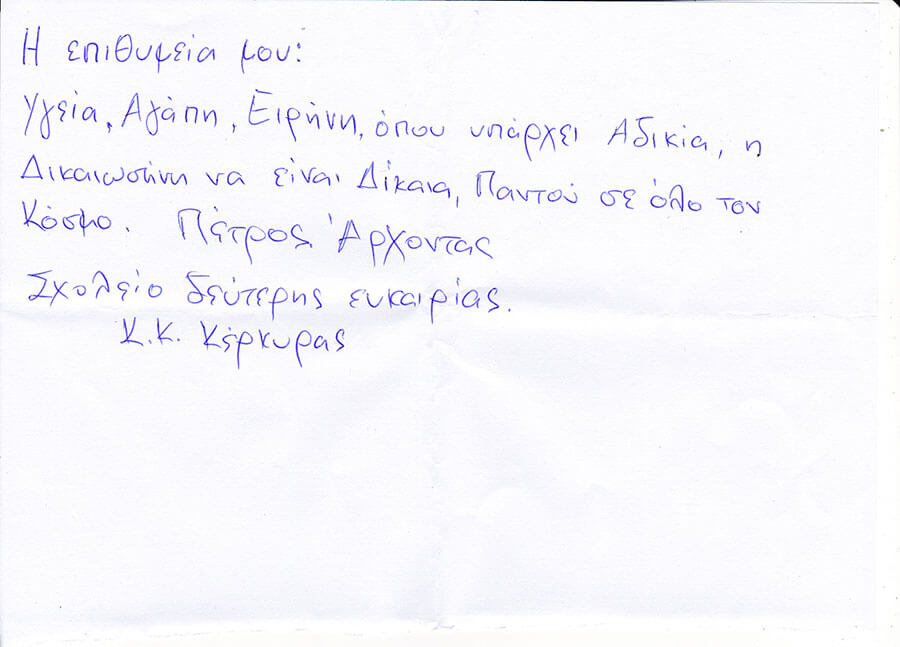 Η επιθυμεία μου:
Υγεία, Αγάπη, Ειρήνη, όπου υπάρχει Αδικία, η
Δικαιωσήνη να είναι Δίκαια, Παντού σε όλο τον
Κόσμο. Πέτρος Άρχοντας
Σχολείο δεύτερης ευκαιρίας.
Κ.Κ. Κέρκυρας